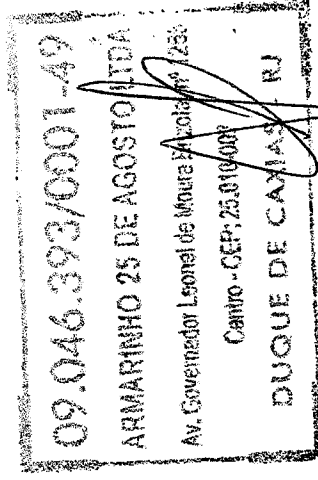 09.046.393/0001-49
ARMARINHO 25 DE AGOSTO LTDA
Av. Governador Leonel de Moura nº
Centro - CEP: 25.010-00
DUQUE DE CAXIAS RJ